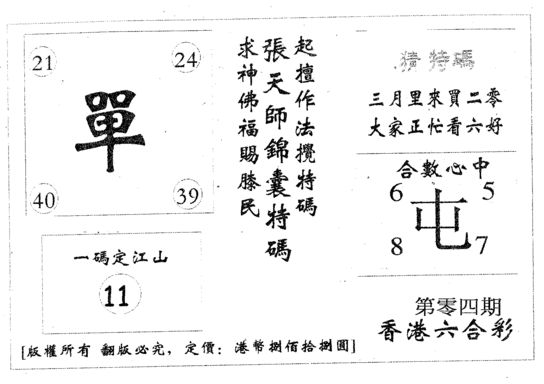 21 24
單
40 39
一碼定江山
11
起擅作法攪特碼
張天師錦囊特碼
求神佛福賜膝民
猜特碼
三月里來買二零
大家正忙看六好
合數心中
6 5
屯
8 7
第零四期
香港六合彩
[版權所有 翻版必究，定價：港幣捌佰拾捌圓]